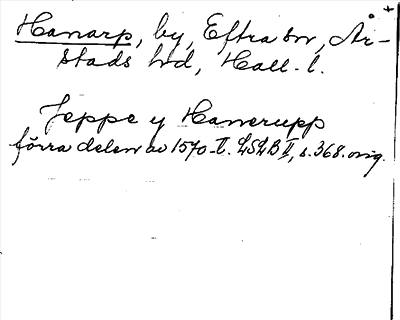 Hanarp, by, Eftra sn, År-
stads hd, Hall. l.
Jeppe y Hanerupp
förra delen av 1570-t. LSLB II, s. 368. orig.